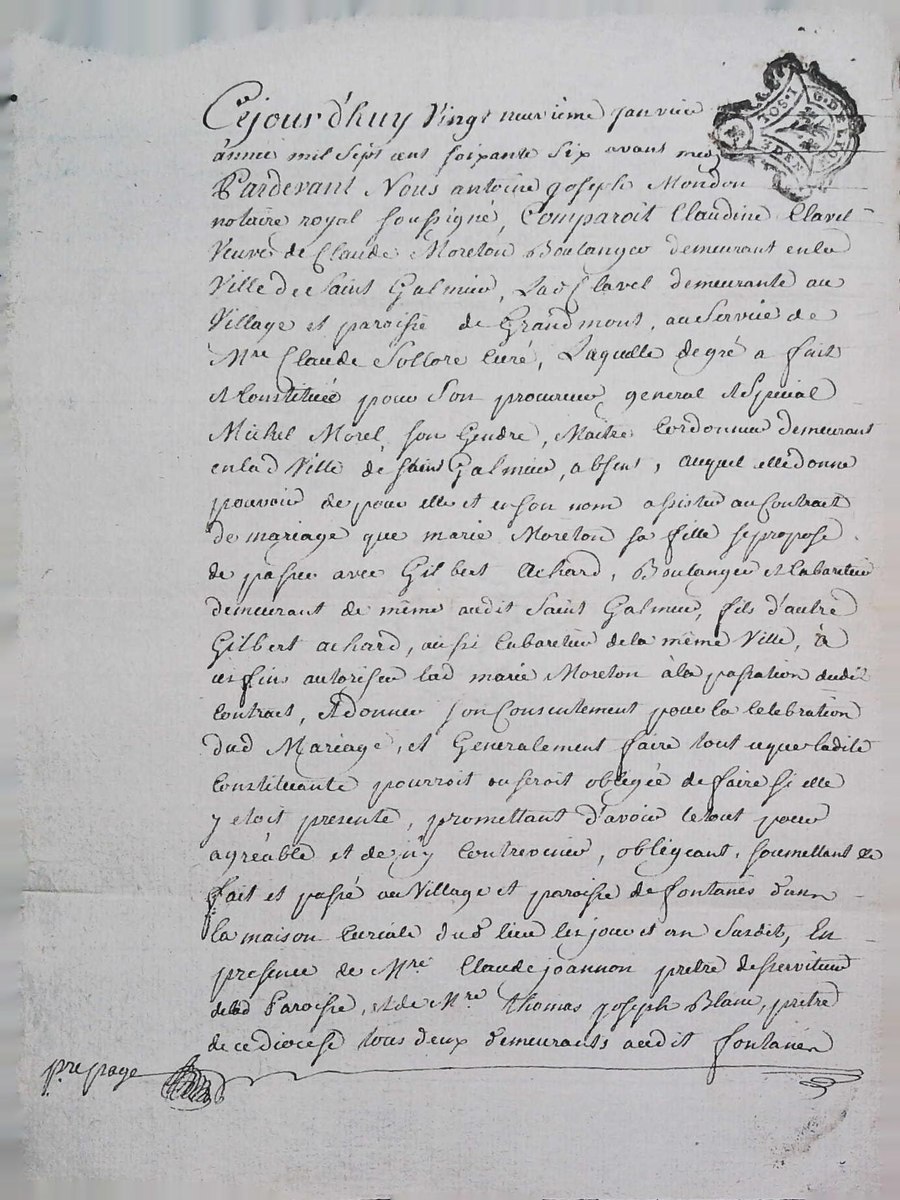 Cejourd'huy Vingt neuvieme janvier
année mil Sept cent soixante Six avant midy
Pardevant Nous antoine joseph Mondon
notaire royal soussigné, Comparoit Claudine Clavel
Veuve de Claude Moreton Boulanger demeurant en la
Ville de Saint Galmier, Lad Clavel demeurante au
Village et paroisse de Grandmont, au Service de
Mre Claude Sollore Curé, Laquelle de gré a fait
et Constituée pour Son procureur general et Special
Michel Morel son Gendre, Maitre Cordonnier demeurant
en lad Ville de Saint Galmier, absent, auquel elle donne
pouvoir de pour elle et en son nom assister au Contrat
de mariage que marie Moreton sa fille se propose
de passer avec Gilbert Achard, Boulanger et Cabaretier
demeurant de même audit Saint Galmier, fils d'autre
Gilbert achard, aussi Cabaretier de la même Ville, à
ces fins autoriser lad marie Moreton à la passation dudit
Contract, et donner son Consentement pour la Celebration
dud Mariage, et Generalement faire tout ce que ladite
Constituante pourroit ou seroit obligée de faire si elle
y etoit presente, promettant d'avoir le tout pour
agréable et de n'y Contrevenir, obligeant, soumettant &c
fait et passé au Village et paroisse de fontanès dans
la maison Curiale dud lieu les jour et an Susdit, En
presence de Mre Claude joannon pretre desserviteur
de lad Paroisse, et de Mre thomas joseph Blanc, prêtre
de ce diocese tous deux demeurants audit fontanès
pre page
G. DE LION
3 DEN